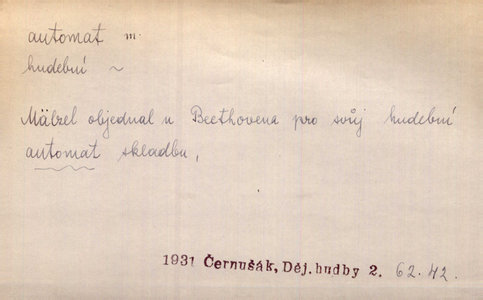 automat m.
hudební ~
Mälzel objednal u Beethovena pro svůj hudební
automat skladbu,
1931 Černušák, Děj. hudby 2. 62.42.